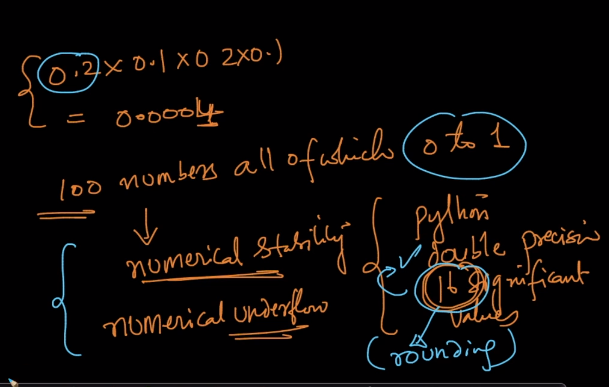 0.2 x 0.1 x 0 2x0.1
= 0.0004
100 numbers all of which 0 to 1
numerical stability
numerical underflow
python
double precision
16 significant
values
(rounding)